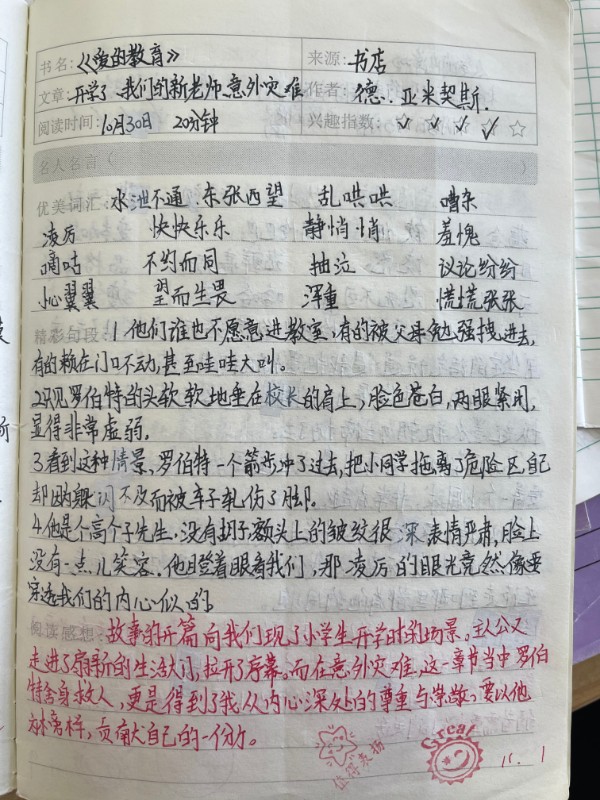 书名:《爱的教育》 来源:书店
文章:开学了 我们的新老师 意外灾难 作者:德.亚米契斯.
阅读时间:10月30日 20分钟 兴趣指数:
名人名言(
优美词汇:水泄不通 东张西望 乱哄哄 嘈杂
凌厉 快快乐乐 静悄悄 羞愧
嘀咕 不约而同 抽泣 议论纷纷
小心翼翼 望而生畏 浑重 慌慌张张
精彩句段:1.他们谁也不愿意进教室,有的被父母勉强拽进去,
有的赖在门口不动,甚至哇哇大叫。
2.只见罗伯特的头软软地垂在校长的肩上,脸色苍白,两眼紧闭,
显得非常虚弱。
3.看到这种情景、罗伯特一个箭步冲了过去,把小同学拖离了危险区,自己
却因躲闪不及而被车子轧伤了脚。
4.他是个高个子先生,没有胡子额头上的皱纹很深,表情严肃,脸上
没有一点儿笑容.他瞪着眼看我们,那凌厉的眼光竟然像要
穿透我们的内心似的。
阅读感想:故事的开篇向我们现了小学生开学时的场景。主人公又
走进了崭新的生活大门,拉开了序幕。而在意外灾难,这一章节当中罗伯
特舍身救人,更是得到了我从内心深处的尊重与崇敬。要以他
为榜样,贡献自己的一份力。
值得表扬 Great 11. 1